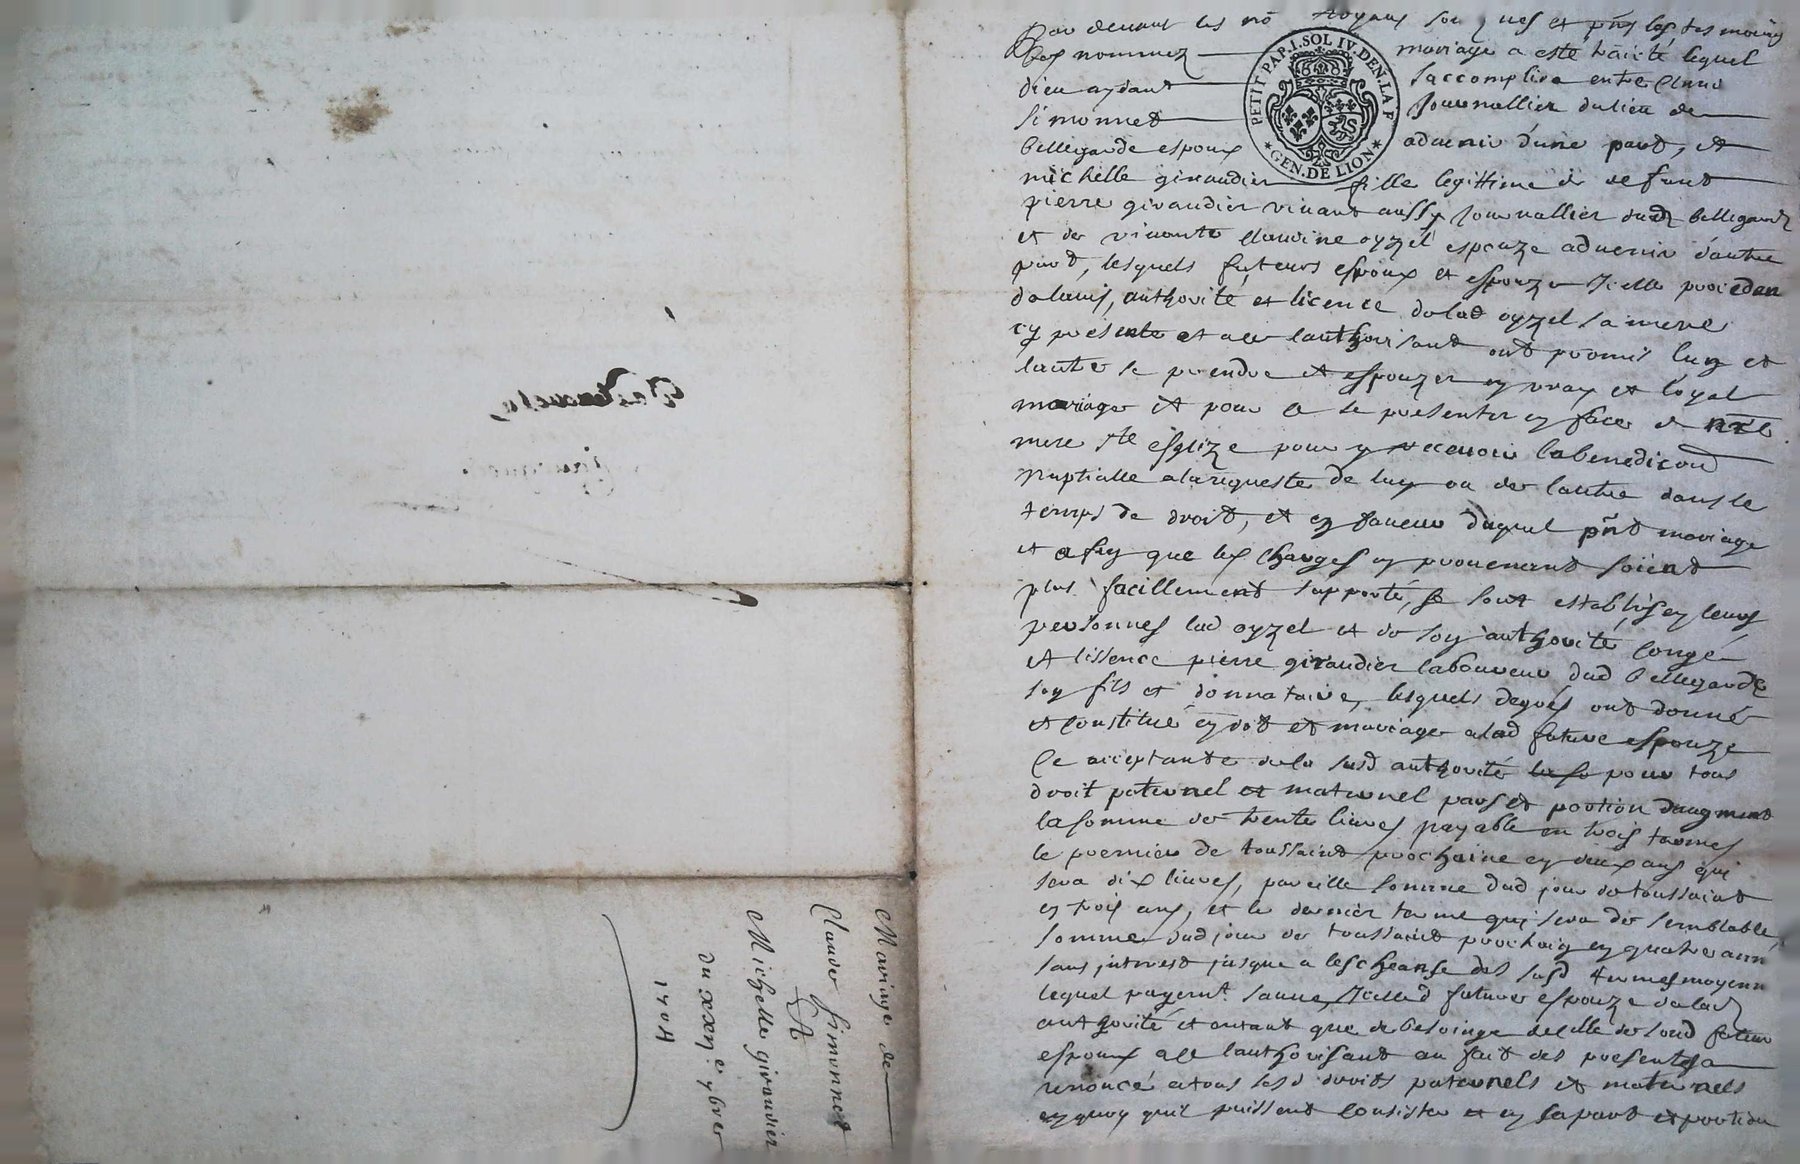 par devant les no royaux sou nes et pnts les tesmoins
bas nommez mariage a esté traicté lequel
dieu aydant s'accomplira entre Claude
Simonnet Journallier du lieu de
bellegarde espoux advenir d'une part, et
michelle giraudier fille legittime de defunt
pierre giraudier vivant aussy journallier dud bellegarde
et de vivante Claudine oyzel espouze advenir d'autre
part, lesquels futeurs espoux et espouze icelle proceden
de lavis, authorité et licence de lad oyzel sa mere
cy presente et a ce lauthorisant ont promis lun et
lautre se prendre et espouzer en vray et loyal
mariage et pour ce se presenter en face de nre
mere ste esglize pour y recevoir la benediction
nuptialle a la requeste de lun ou de lautre dans le
temps de droit, et en faveur duquel pnt mariage
et afin que les charges en provenant soient
plus facillement supporté, se sont establis en leurs
personnes lad oyzel et de son authorité congé
et lissence pierre giraudier laboureur dud bellegarde
son fils et donnataire, lesquels de gré ont donné
et constitué en dot et mariage a lad future espouze
ce acceptante de la susd authorité pour tous
droit paternel et maternel pars et portion daugment
la somme de trente livres payable en trois termes
le premier de toussaint prochaine en deux ans qui
sera dix livres, pareille somme dud jour de toussaint
en trois ans, et le dernier terme qui sera de semblable
somme dud jour de toussaint prochain en quatre ann
sans interest jusque a lescheanse des susd termes moyenn
lequel payemt. lad future espouze de lad
authorité et autant que de besoinge de celle de soud futeur
espoux a ce lauthorisant au fait des presentes a
renoncé a tous sesd droits paternels et maternels
en quoy quil puissent consister et en sa part et portion
PETIT PAP. I. SOL IV. DEN. LA F
★ GEN. DE LION ★
Mariage de
Claude Simonnet
Et
Michelle giraudier
du xxxe 9bre
1704